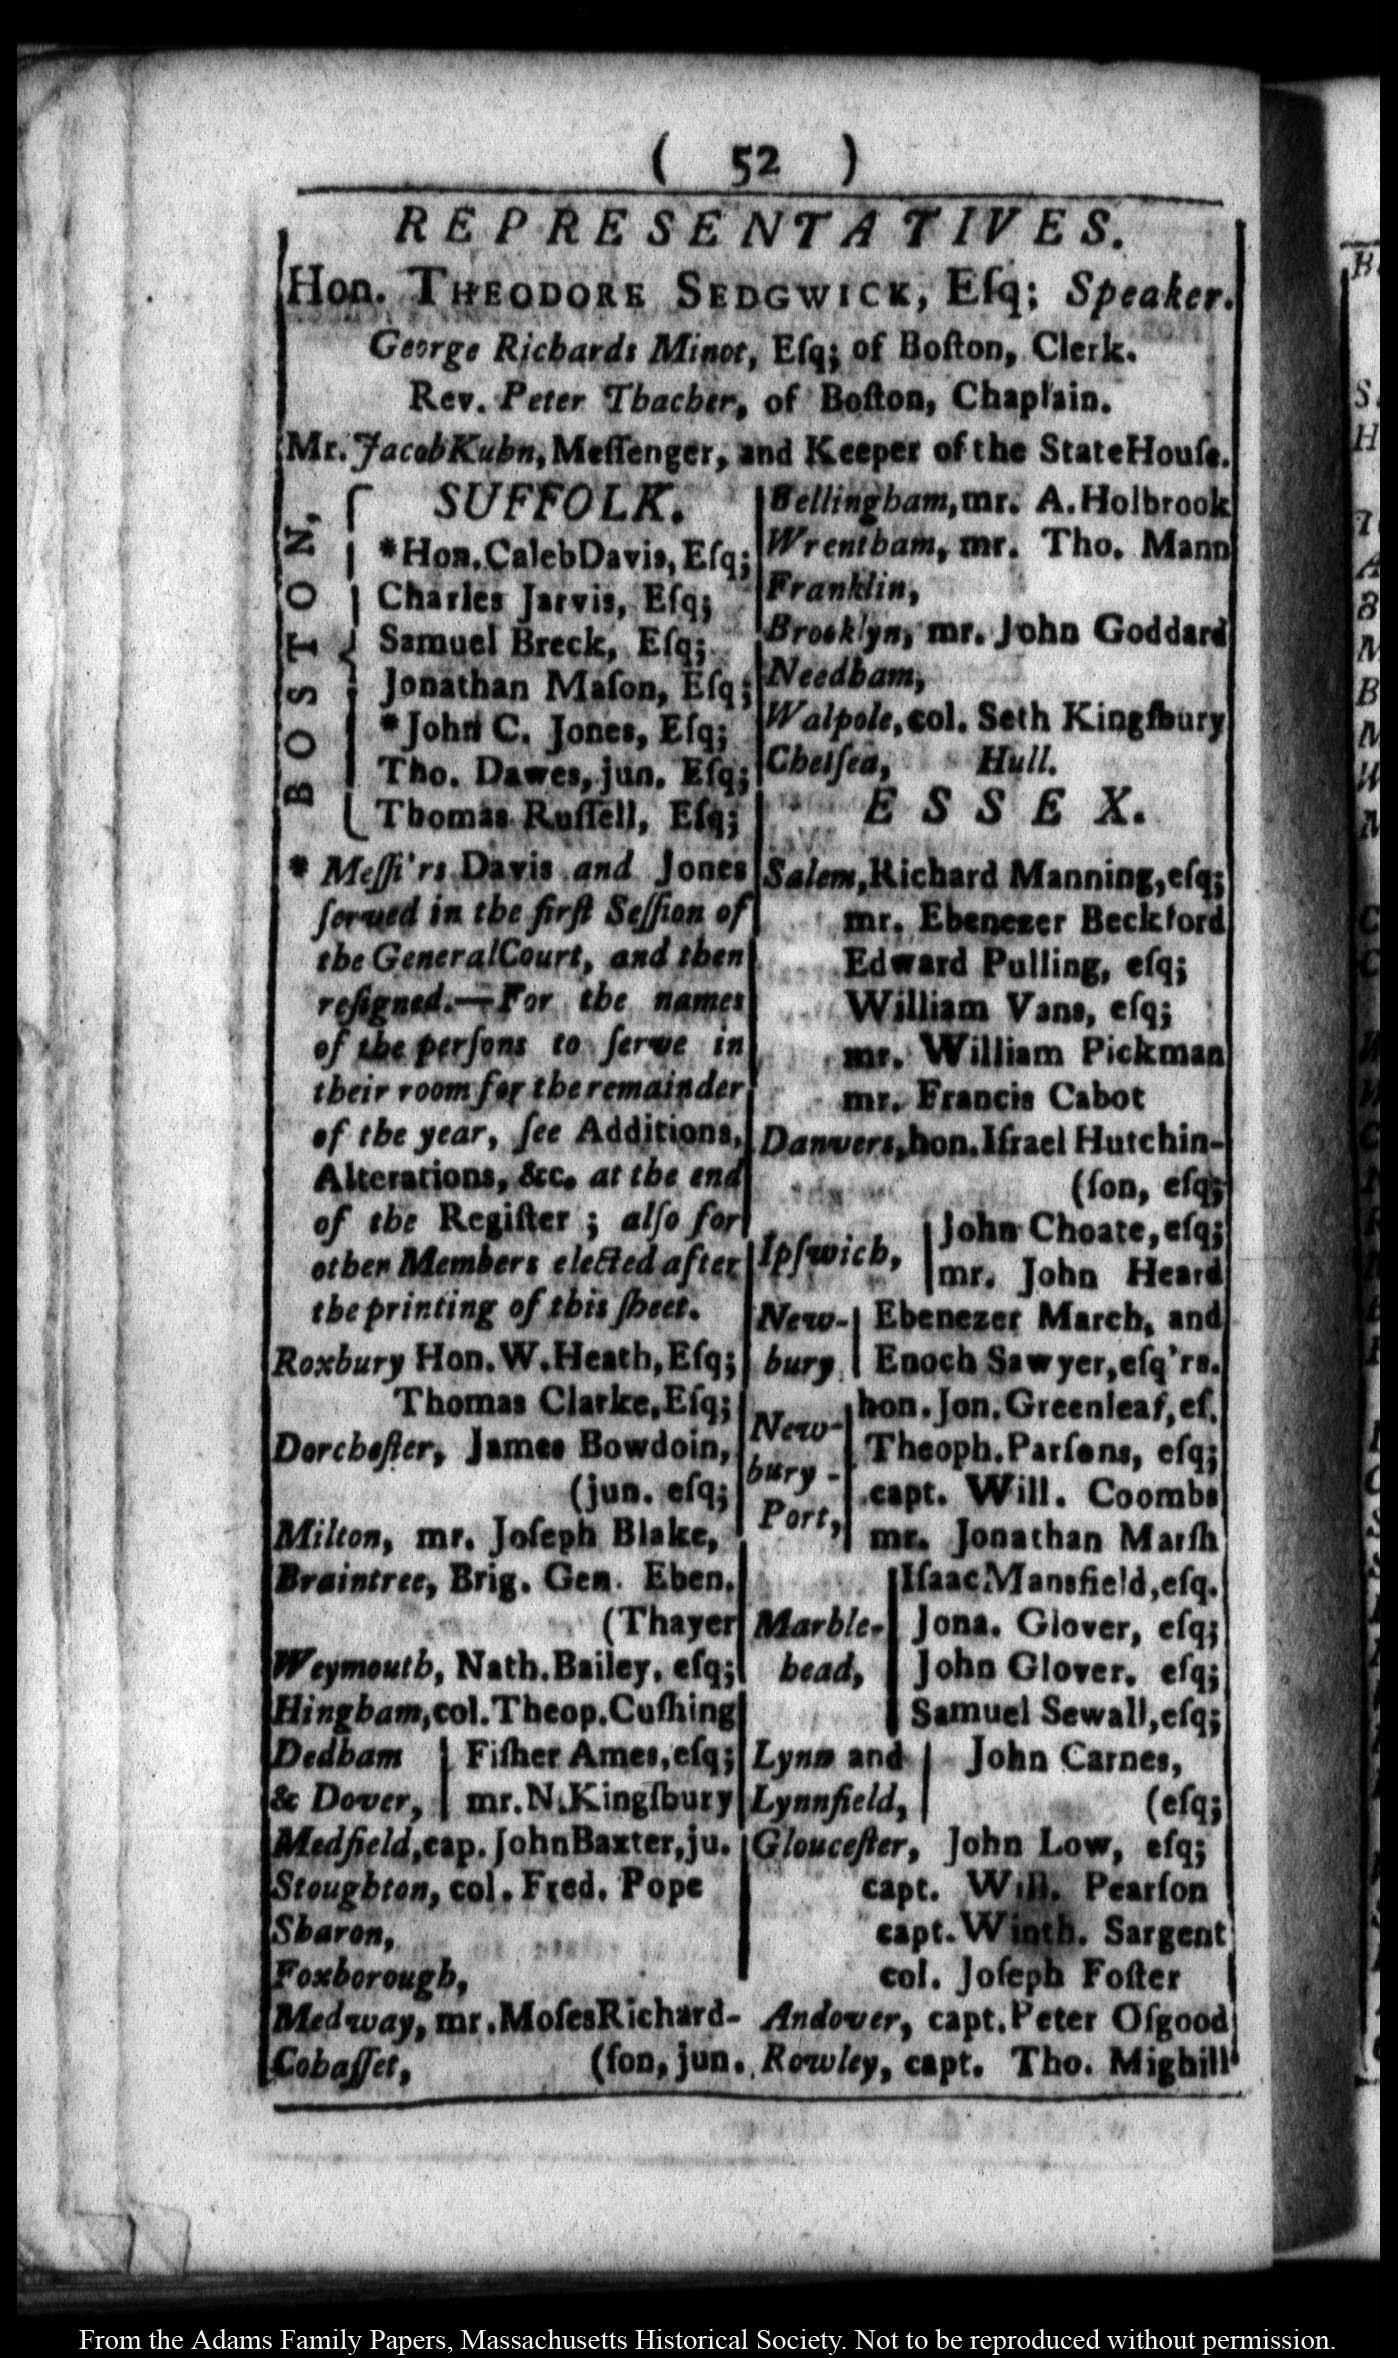 ( 52 )
REPRESENTATIVES.
Hon. THEODORE SEDGWICK, Eſq; Speaker.
George Richards Minot, Eſq; of Boſton, Clerk.
Rev. Peter Thacher, of Boſton, Chaplain.
Mr. Jacob Kuhn, Meſſenger, and Keeper of the State Houſe.
BOSTON,
SUFFOLK.
*Hon. Caleb Davis, Eſq;
Charles Jarvis, Eſq;
Samuel Breck, Eſq;
Jonathan Maſon, Eſq;
*John C. Jones, Eſq;
Tho. Dawes, jun. Eſq;
Thomas Ruſſell, Eſq;
* Meſſi'rs Davis and Jones
ſerved in the firſt Seſſion of
the General Court, and then
reſigned.—For the names
of the perſons to ſerve in
their room for the remainder
of the year, ſee Additions,
Alterations, &c. at the end
of the Regiſter ; alſo for
other Members elected after
the printing of this ſheet.
Roxbury Hon. W. Heath, Eſq;
Thomas Clarke, Eſq;
Dorcheſter, James Bowdoin,
(jun. eſq;
Milton, mr. Joſeph Blake,
Braintree, Brig. Gen. Eben.
(Thayer
Weymouth, Nath. Bailey, eſq;
Hingham, col. Theop. Cuſhing
Dedham | Fiſher Ames, eſq;
& Dover, | mr. N. Kingſbury
Medfield, cap. John Baxter, ju.
Stoughton, col. Fred. Pope
Sharon,
Foxborough,
Medway, mr. Moſes Richard-
Cohaſſet, (ſon, jun.
Bellingham, mr. A. Holbrook
Wrentham, mr. Tho. Mann
Franklin,
Brooklyn, mr. John Goddard
Needham,
Walpole, col. Seth Kingſbury
Chelſea, Hull.
ESSEX.
Salem, Richard Manning, eſq;
mr. Ebenezer Beckford
Edward Pulling, eſq;
William Vans, eſq;
mr. William Pickman
mr. Francis Cabot
Danvers, hon. Iſrael Hutchin-
(ſon, eſq;
Ipſwich, | John Choate, eſq;
| mr. John Heard
New- | Ebenezer March, and
bury | Enoch Sawyer, eſq'rs.
New- | hon. Jon. Greenleaf, eſ.
bury- | Theoph. Parſons, eſq;
Port, | capt. Will. Coombs
| mr. Jonathan Marſh
| Iſaac Mansfield, eſq.
Marble- | Jona. Glover, eſq;
head, | John Glover, eſq;
| Samuel Sewall, eſq;
Lynn and | John Carnes,
Lynnfield, | (eſq;
Glouceſter, John Low, eſq;
capt. Will. Pearſon
capt. Winth. Sargent
col. Joſeph Foſter
Andover, capt. Peter Oſgood
Rowley, capt. Tho. Mighill
From the Adams Family Papers, Massachusetts Historical Society. Not to be reproduced without permission.